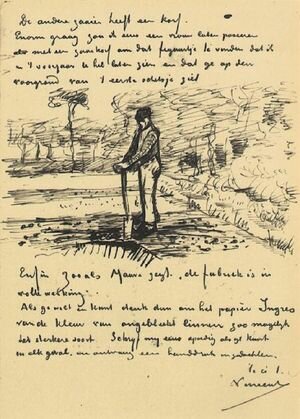 De andere zaaier heeft een korf.
Enorm graag zou ik eens een vrouw laten poseeren
met een zaaikorf om dat figuurtje te vinden dat ik
u 't voorjaar heb laten zien en dat ge op den
voorgrond van 't eerste schetsje ziet
Enfin zooals Mauve zegt, de fabriek is in
volle werking.
Als ge wilt en kunt denk dan om het papier Ingres
van de kleur van ongebleekt linnen zoo mogelijk
het sterkere soort. Schrijf my eens spoedig als ge kunt
in elk geval, en ontvang een handdruk in gedachten.
t. à t.
Vincent